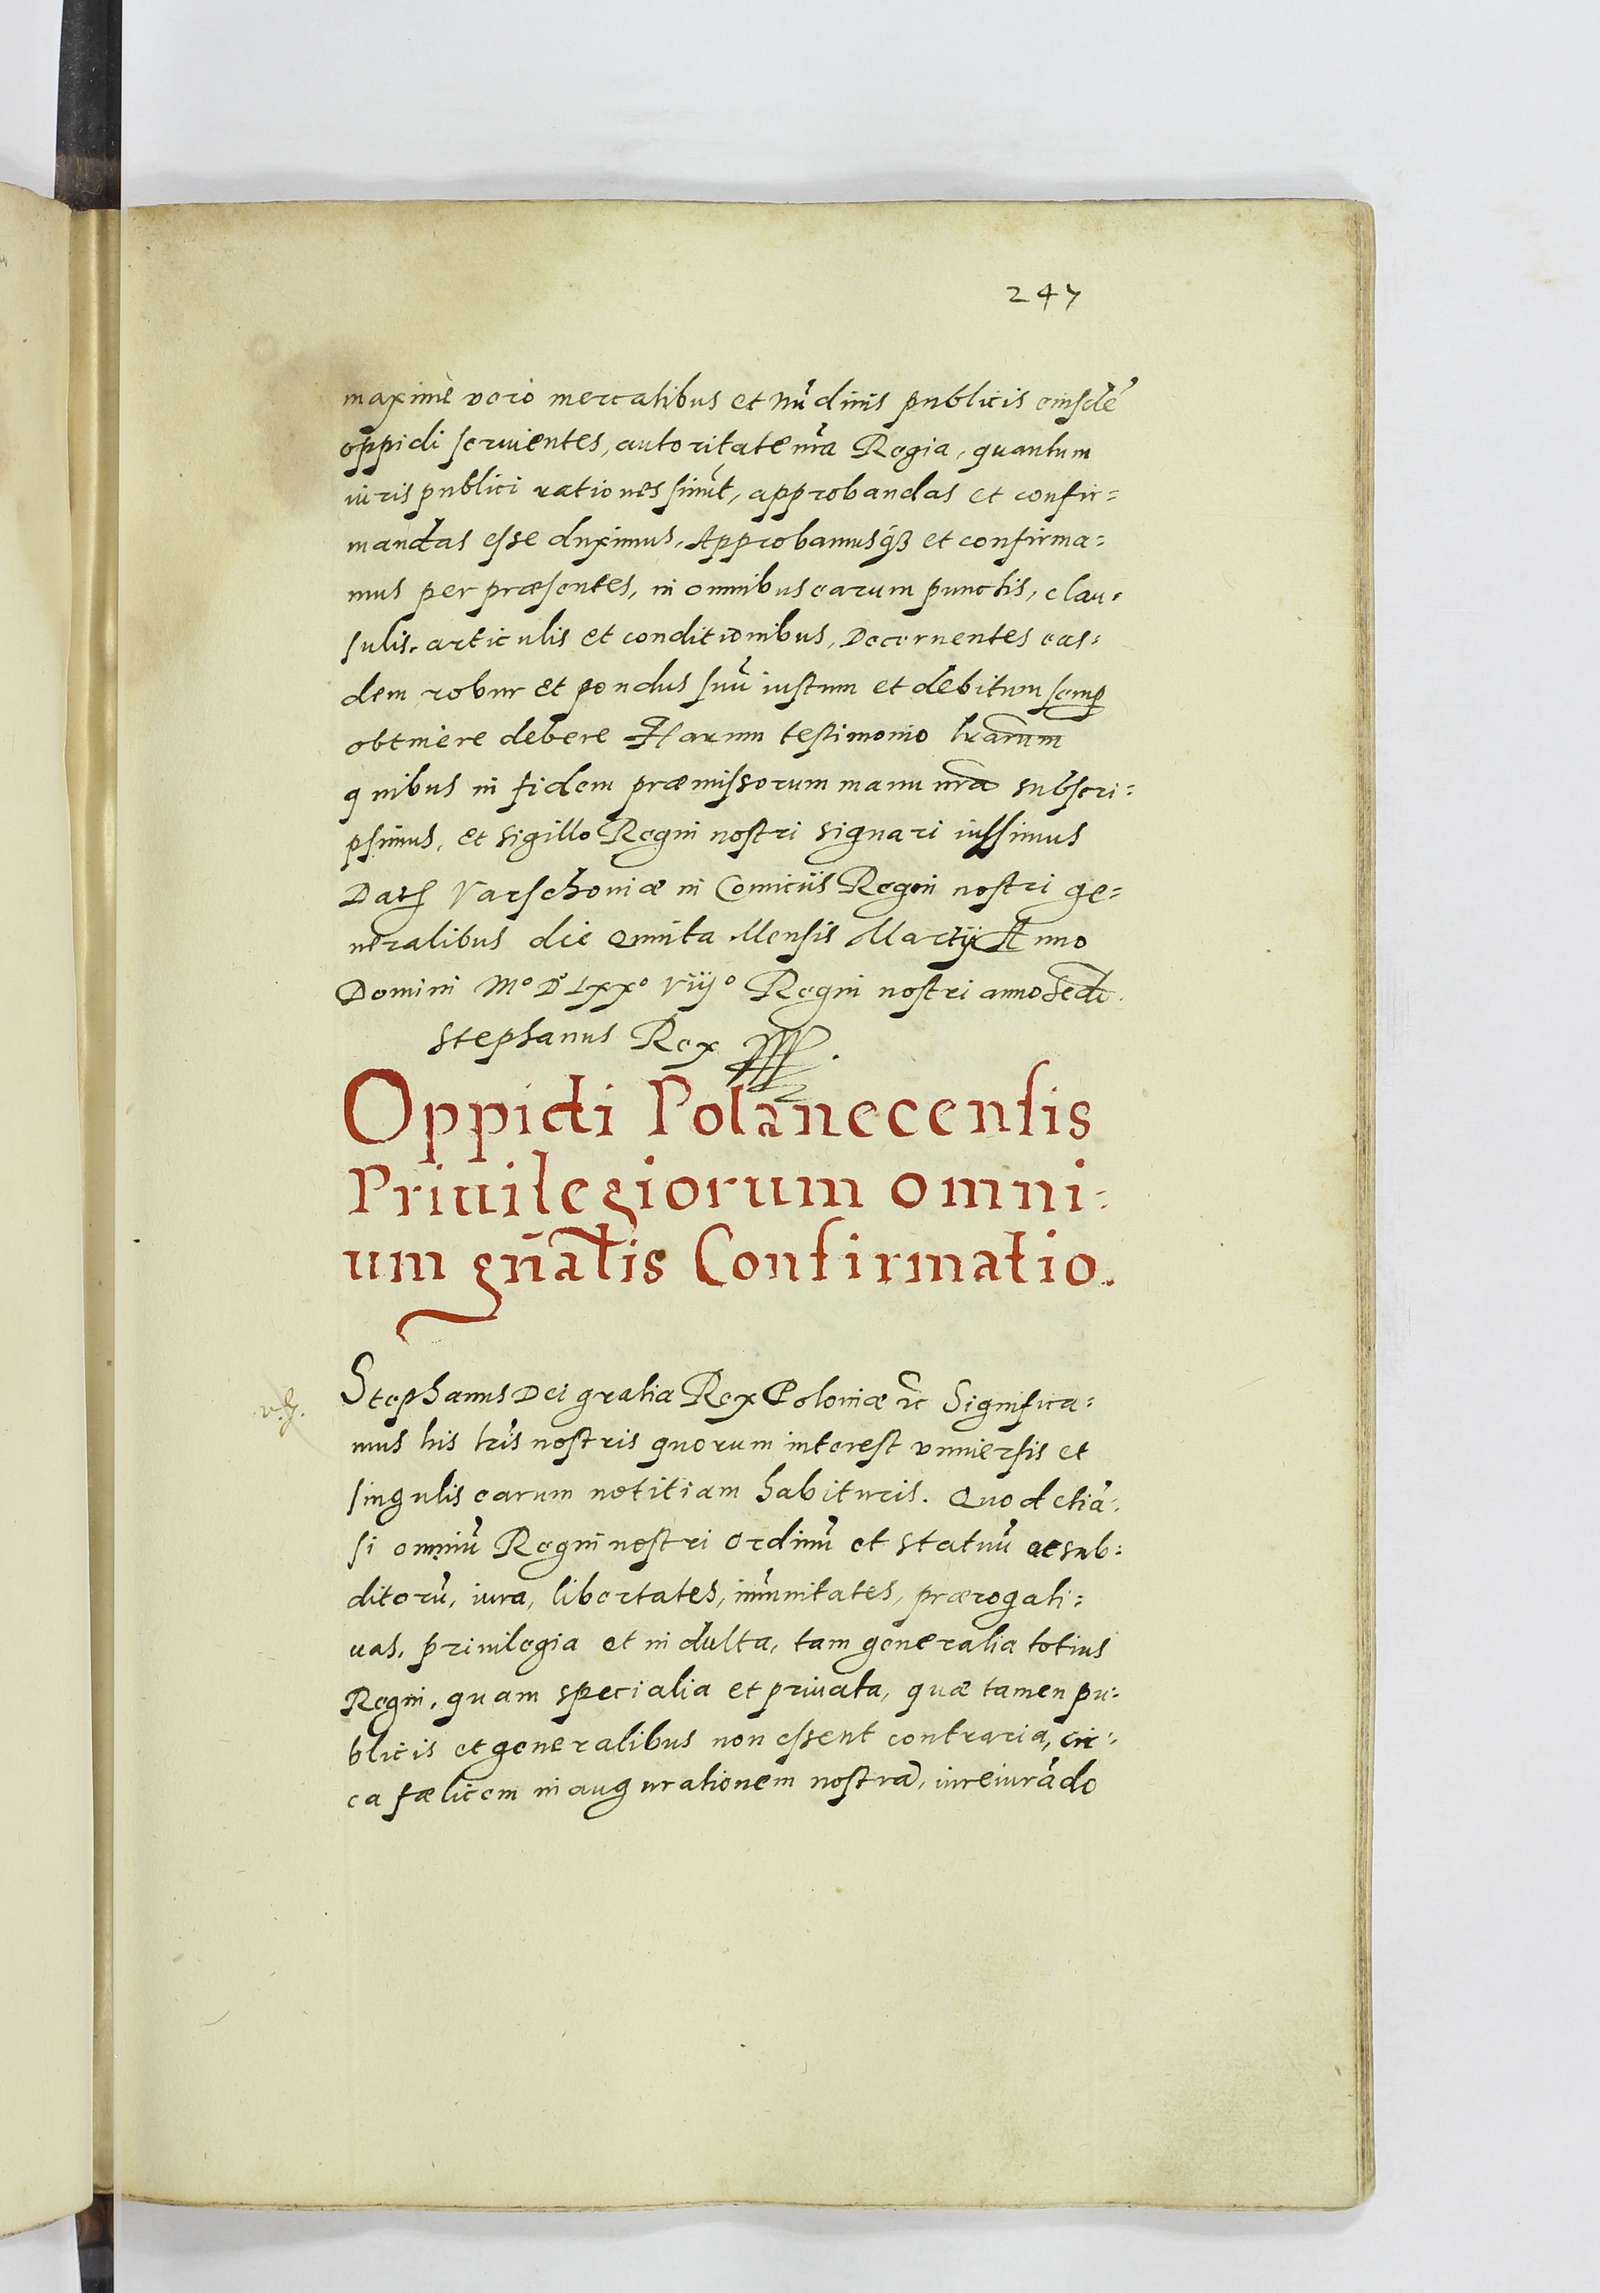 247
maxime vero mercatibus et nūdinis publicis eiusdē
oppidi seruientes, autoritate nr̃a Regia, quantum
iuris publici rationes sinūt, approbandas et confir=
mandas esse duximus, Approbamusq́ꝫ et confirma=
mus per præsentes, in omnibus earum punctis, clau=
sulis, articulis et conditionibus, Decernentes eas=
dem robur et pondus suū iustum et debitum semꝑ
obtinere debere Harum testimonio lr̃arum
quibus in fidem præmissorum manu nr̃a subscri=
psimus, et Sigillo Regni nostri signari iussimus
Dat̃ Varschoviæ in Comitiis Regni nostri ge=
neralibus die Quinta Mensis Martij Anno
Domini Mº Dº Lxxº viijº Regni nostri anno Secd̃o.
Stephanus Rex
Oppidi Polanecensis
Priuilegiorum omni=
um gñalis Confirmatio.
Stephanus Dei gratia Rex Poloniæ ꝛc Significa=
mus his lr̃is nostris quorum interest vniuersis et
singulis earum notitiam habituris. Quod etiā=
si omniū Regni nostri Ordinū et Statuū ac sub=
ditorū, iura, libertates, im̄unitates, prærogati=
uas, priuilegia et indulta, tam generalia totius
Regni, quam specialia et priuata, quæ tamen pu=
blicis et generalibus non essent contraria, cir=
ca fælicem inaugurationem nostrā, iureiurādo